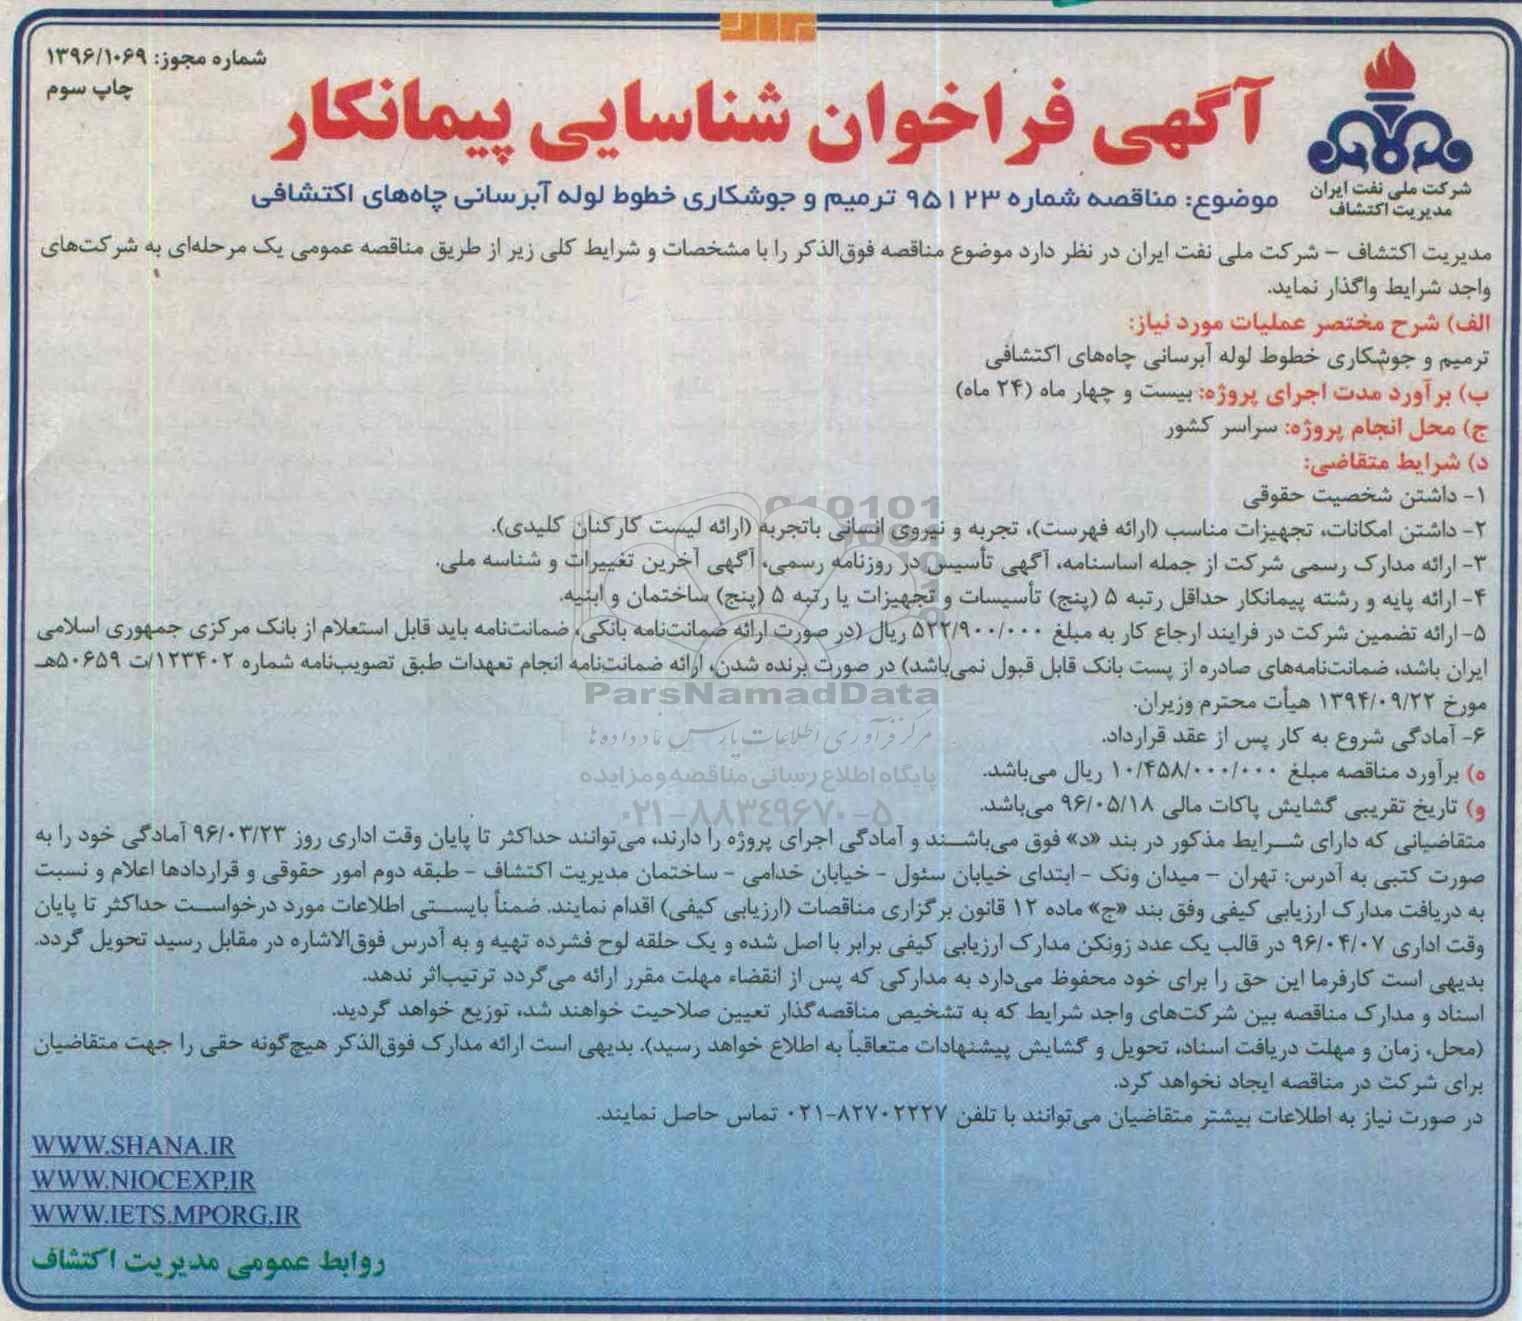 شماره مجوز: ۱۳۹۶/۱۰۶۹
چاپ سوم
آگهی فراخوان شناسایی پیمانکار
شرکت ملی نفت ایران
مدیریت اکتشاف
موضوع: مناقصه شماره ۹۵۱۲۳ ترمیم و جوشکاری خطوط لوله آبرسانی چاه‌های اکتشافی
مدیریت اکتشاف – شرکت ملی نفت ایران در نظر دارد موضوع مناقصه فوق‌الذکر را با مشخصات و شرایط کلی زیر از طریق مناقصه عمومی یک مرحله‌ای به شرکت‌های
واجد شرایط واگذار نماید.
الف) شرح مختصر عملیات مورد نیاز:
ترمیم و جوشکاری خطوط لوله آبرسانی چاه‌های اکتشافی
ب) برآورد مدت اجرای پروژه: بیست و چهار ماه (۲۴ ماه)
ج) محل انجام پروژه: سراسر کشور
د) شرایط متقاضی:
۱- داشتن شخصیت حقوقی
۲- داشتن امکانات، تجهیزات مناسب (ارائه فهرست)، تجربه و نیروی انسانی باتجربه (ارائه لیست کارکنان کلیدی).
۳- ارائه مدارک رسمی شرکت از جمله اساسنامه، آگهی تأسیس در روزنامه رسمی، آگهی آخرین تغییرات و شناسه ملی.
۴- ارائه پایه و رشته پیمانکار حداقل رتبه ۵ (پنج) تأسیسات و تجهیزات یا رتبه ۵ (پنج) ساختمان و ابنیه.
۵- ارائه تضمین شرکت در فرایند ارجاع کار به مبلغ ۵۲۲/۹۰۰/۰۰۰ ریال (در صورت ارائه ضمانت‌نامه بانکی، ضمانت‌نامه باید قابل استعلام از بانک مرکزی جمهوری اسلامی
ایران باشد، ضمانت‌نامه‌های صادره از پست بانک قابل قبول نمی‌باشد) در صورت برنده شدن، ارائه ضمانت‌نامه انجام تعهدات طبق تصویب‌نامه شماره ۱۲۳۴۰۲/ت ۵۰۶۵۹هـ
مورخ ۱۳۹۴/۰۹/۲۲ هیأت محترم وزیران.
۶- آمادگی شروع به کار پس از عقد قرارداد.
ه) برآورد مناقصه مبلغ ۱۰/۴۵۸/۰۰۰/۰۰۰ ریال می‌باشد.
و) تاریخ تقریبی گشایش پاکات مالی ۹۶/۰۵/۱۸ می‌باشد.
متقاضیانی که دارای شرایط مذکور در بند «د» فوق می‌باشند و آمادگی اجرای پروژه را دارند، می‌توانند حداکثر تا پایان وقت اداری روز ۹۶/۰۳/۲۳ آمادگی خود را به
صورت کتبی به آدرس: تهران – میدان ونک – ابتدای خیابان سئول – خیابان خدامی – ساختمان مدیریت اکتشاف – طبقه دوم امور حقوقی و قراردادها اعلام و نسبت
به دریافت مدارک ارزیابی کیفی وفق بند «ج» ماده ۱۲ قانون برگزاری مناقصات (ارزیابی کیفی) اقدام نمایند. ضمناً بایستی اطلاعات مورد درخواست حداکثر تا پایان
وقت اداری ۹۶/۰۴/۰۷ در قالب یک عدد زونکن مدارک ارزیابی کیفی برابر با اصل شده و یک حلقه لوح فشرده تهیه و به آدرس فوق‌الاشاره در مقابل رسید تحویل گردد.
بدیهی است کارفرما این حق را برای خود محفوظ می‌دارد به مدارکی که پس از انقضاء مهلت مقرر ارائه می‌گردد ترتیب‌اثر ندهد.
اسناد و مدارک مناقصه بین شرکت‌های واجد شرایط که به تشخیص مناقصه‌گذار تعیین صلاحیت خواهند شد، توزیع خواهد گردید.
(محل، زمان و مهلت دریافت اسناد، تحویل و گشایش پیشنهادات متعاقباً به اطلاع خواهد رسید). بدیهی است ارائه مدارک فوق‌الذکر هیچ‌گونه حقی را جهت متقاضیان
برای شرکت در مناقصه ایجاد نخواهد کرد.
در صورت نیاز به اطلاعات بیشتر متقاضیان می‌توانند با تلفن ۸۲۷۰۲۲۲۷-۰۲۱ تماس حاصل نمایند.
WWW.SHANA.IR
WWW.NIOCEXP.IR
WWW.IETS.MPORG.IR
روابط عمومی مدیریت اکتشاف
ParsNamadData
مرکز فرآوری اطلاعات پارس نماد داده ها
پایگاه اطلاع رسانی مناقصه و مزایده
۰۲۱-۸۸۳۴۹۶۷۰-۵